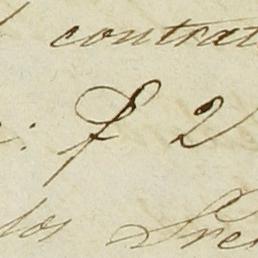 contrat
f 2
los Sres